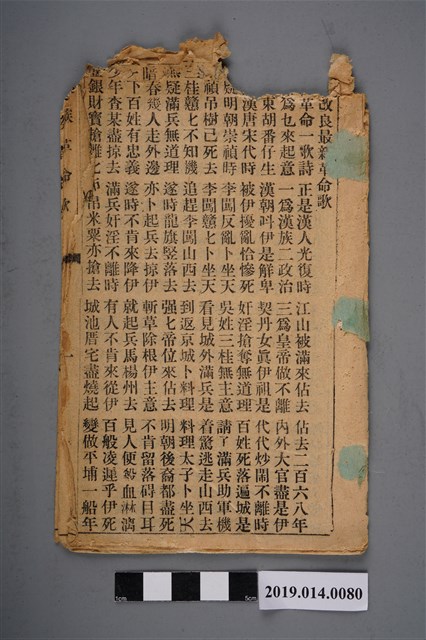 改良最新革命歌
革命一歌詩 正是漢人光復時 江山被滿來佔去 佔去二百六八年
為乜來起意 一為漢族二政治 三為皇帝做不離 內外大官盡是伊
東胡番仔生 漢朝呌伊是鮮卑 契丹女眞伊祖是 代代炒鬧不離時
漢唐宋代時 被伊擾亂恰慘死 奸淫搶奪無道理 百姓死落遍城是
疑明朝崇禎時 李闖反亂卜坐天 吳姓三桂無主意 請了滿兵助軍機
禎吊樹已死去 李闖贛乜卜坐天 看見城外滿兵是 着驚逃走山西去
桂贛乜不知機 追赶李闖山西去 到返京城卜料理 料理太子卜坐天
疑滿兵無道理 遂時龍旗竪落去 强乜帝位來佔去 明朝後裔都盡死
暗春幾人走外邊 亦卜起兵去掠伊 斬草除根伊主意 不肯留落碍目耳
下百姓有忠義 遂時不肯來降伊 就起兵馬楊州去 見人便殺血淋漓
年查某盡掠去 滿兵奸淫不離時 有人不肯來從伊 百般凌遲乎伊死
銀財寶搶離 帛米粟亦搶去 城池厝宅盡燒起 變做平埔一船年
族革命歌 一
1cm 5cm
2019.014.0080